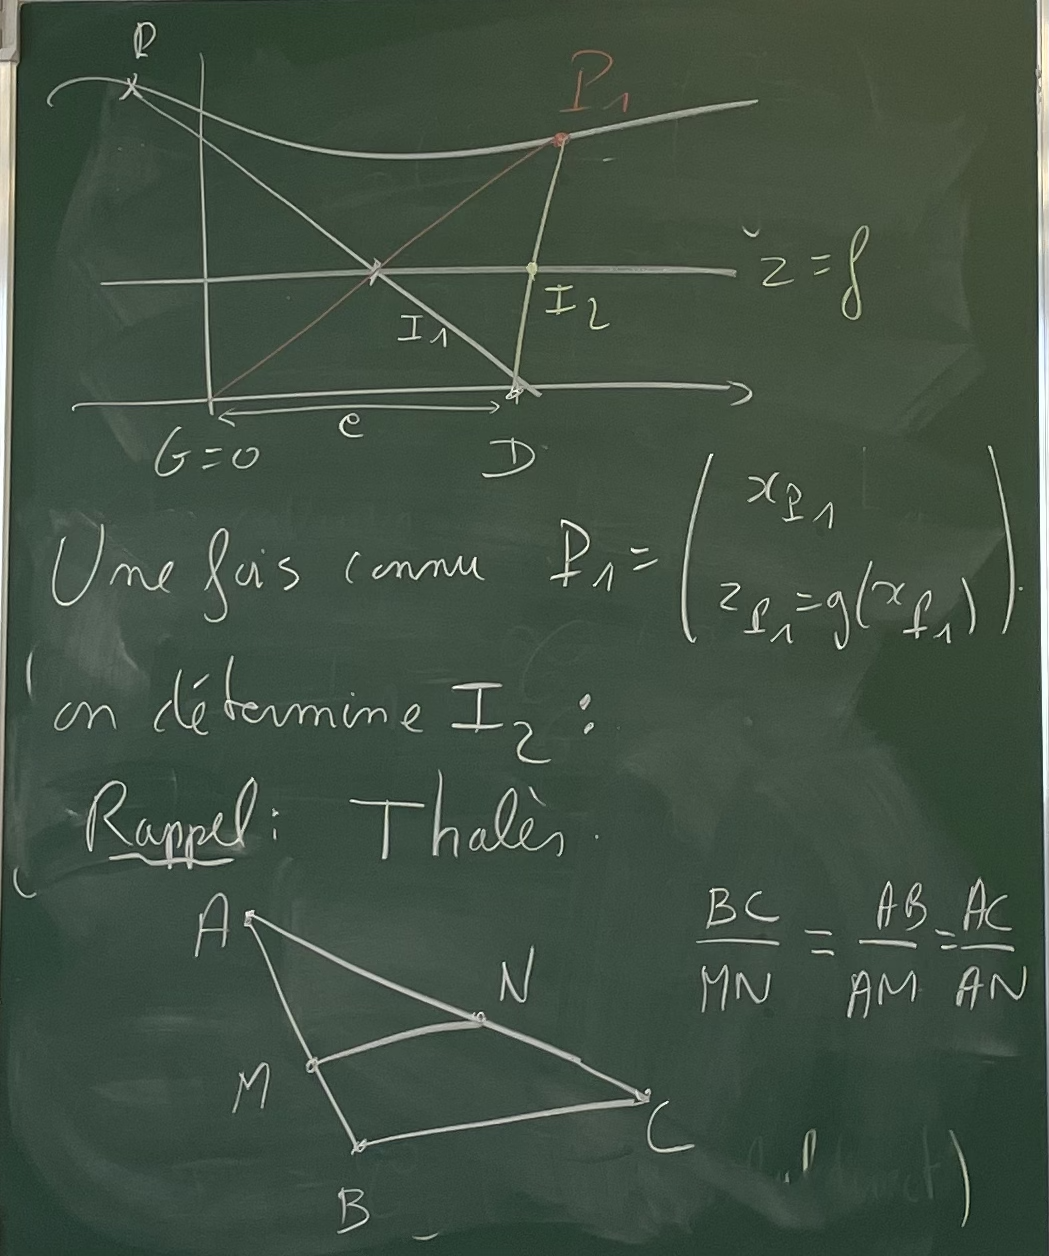 P
P₁
z = f
I₁
I₂
e
G=0
D
Une fois connu P₁ = ( x_P₁
z_P₁ = g(x_P₁) ).
on détermine I₂ :
Rappel : Thalès.
A
N
BC/MN = AB/AM = AC/AN
M
C
B
)